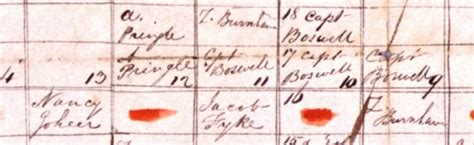 a. Z. Burnham 18 Capt
Pringle Boswell
A Pringle Capt Boswell 17 Capt Boswell Capt Boswell
4 13 12 11 10 9
Nancy Jacob 16 Z
Joheer Fyke Burnham
15